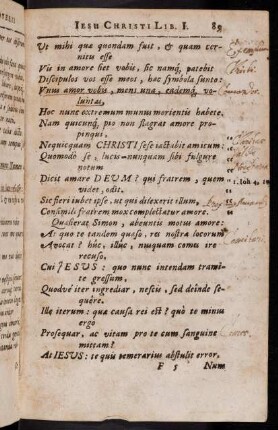 IESU CHRISTI LIB. I. 89
Ut mihi quæ quondam fuit, & quam cer-
nitu esse
Vis in amore siet vobis, sic namq́, patebit
Discipulos vos esse meos, hæc symbola sunto:
Unus amor vobis, mens una, eademq́, vo-
luntas,
Hoc nunc extremum munus morientis habete.
Nam quicunq́, pio non flagrat amore pro-
pinqui,
Nequicquam CHRISTI sese iactabit amicum:
Quomodo se, lucis nunquam sibi fulgure
notum
Dicit amare DEUM? qui fratrem, quem
videt, odit.
Sic fieri iubet ipse, ut qui dilexerit illum,
Consimili fratrem mox complectatur amore.
Qualiter at Simon, abeuntis motus amore:
At quo te tandem quæso, rex nostra locorum
Avocat? huc, illuc, nusquam comes ire
recuso,
Cui JESUS: quo nunc intendam trami-
te gressum,
Quodvé iter ingrediar, nescis, sed deinde se-
quére.
Ille iterum: quæ causa rei est? quò te minus
ergo
Prosequar, ac vitam pro te cum sanguine
mittam?
At IESUS: te quis temerarius abstulit error,
F 5 Num
1. Ioh 4.